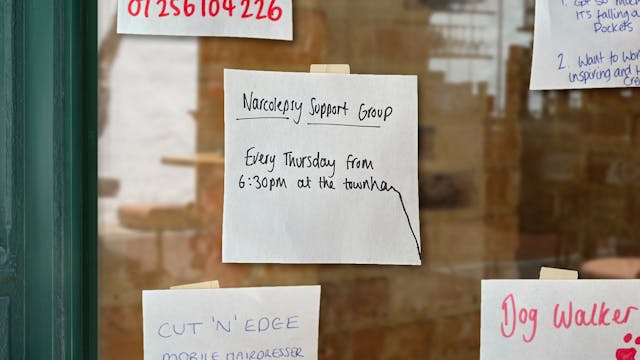 01256104226
Narcolepsy Support Group
Every Thursday from
6:30pm at the townha
1. Got so much
it's falling o
Pockets
2. Want to wor
inspiring and
Cre
CUT 'N' EDGE
MOBILE HAIRDRESSER
Dog Walker